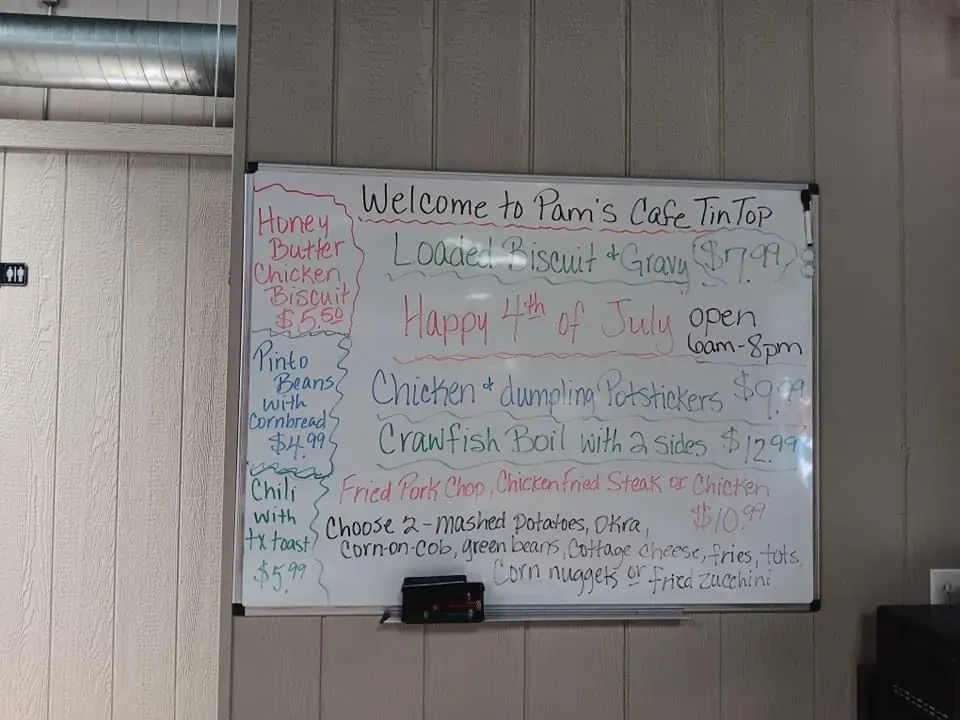 Welcome to Pam's Cafe TinTop
Honey
Butter
Chicken
Biscuit
$5.50
Pinto
Beans
with
Cornbread
$4.99
Chili
with
tx toast
$5.99
Loaded Biscuit & Gravy $7.99
Happy 4th of July open
6am-8pm
Chicken & dumpling Potstickers $9.99
Crawfish Boil with 2 sides $12.99
Fried Pork Chop, Chickenfried Steak or Chicken
$10.99
Choose 2-mashed potatoes, Okra,
Corn-on-cob, green beans, Cottage cheese, fries, tots,
Corn nuggets or fried zucchini